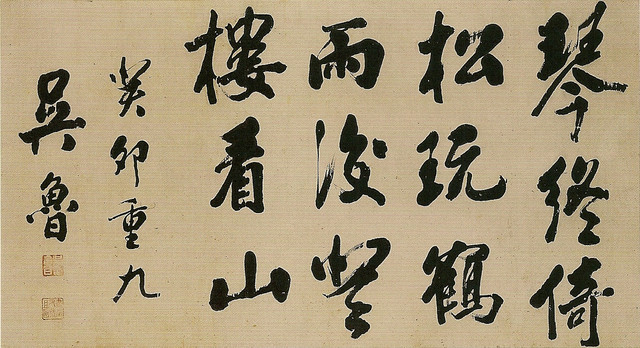 琴終倚
松玩鶴
雨後登
樓看山
癸卯重九
吳魯